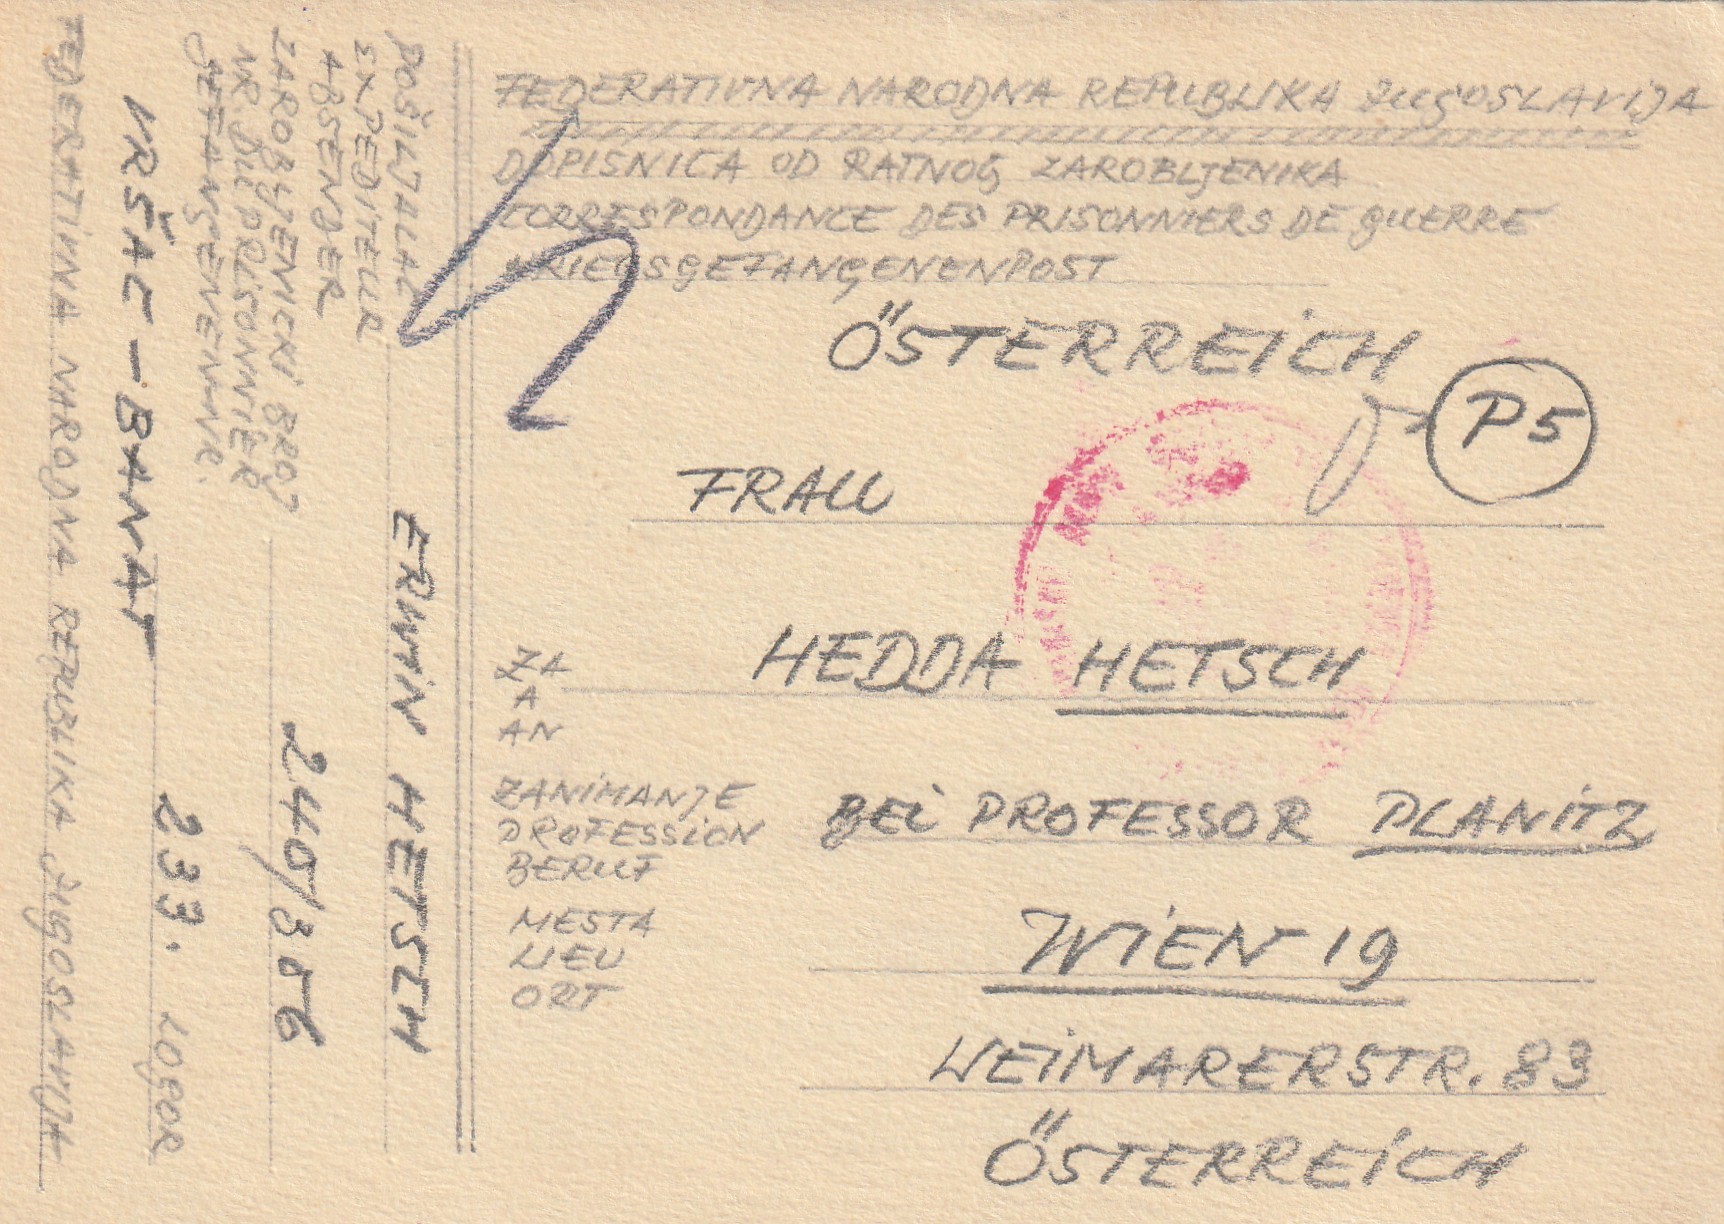 FEDERATIVNA NARODNA REPUBLIKA JUGOSLAVIJA
DOPISNICA OD RATNOG ZAROBLJENIKA
CORRESPONDANCE DES PRISONNIERS DE GUERRE
KRIEGSGEFANGENENPOST
ÖSTERREICH
P5
FRAU
ZA
A
AN
HEDDA HETSCH
ZANIMANJE
PROFESSION
BERUF
BEI PROFESSOR PLANITZ
MESTA
LIEU
ORT
WIEN 19
WEIMARERSTR. 83
ÖSTERREICH
POŠILJALAC
EXPEDITEUR
ABSENDER
ERWIN HETSCH
ZAROBLJENICKI BROJ
NR. DU PRISONNIER
GEFANGENENNR.
240/3056
VRŠAC - BANAT
233. LOGOR
FEDERATIVNA NARODNA REPUBLIKA JUGOSLAVIJA